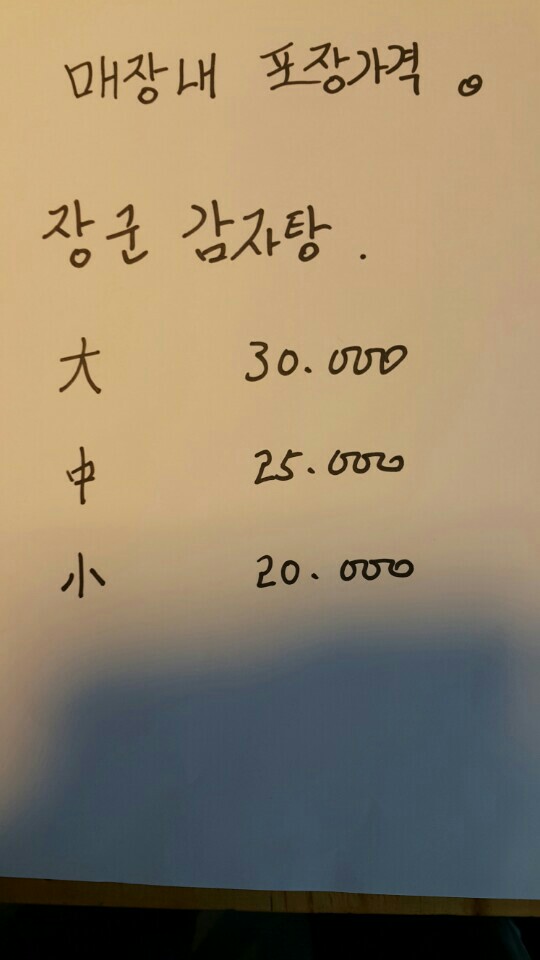 매장내 포장가격。
장군 감자탕.
大 30.000
中 25.000
小 20.000